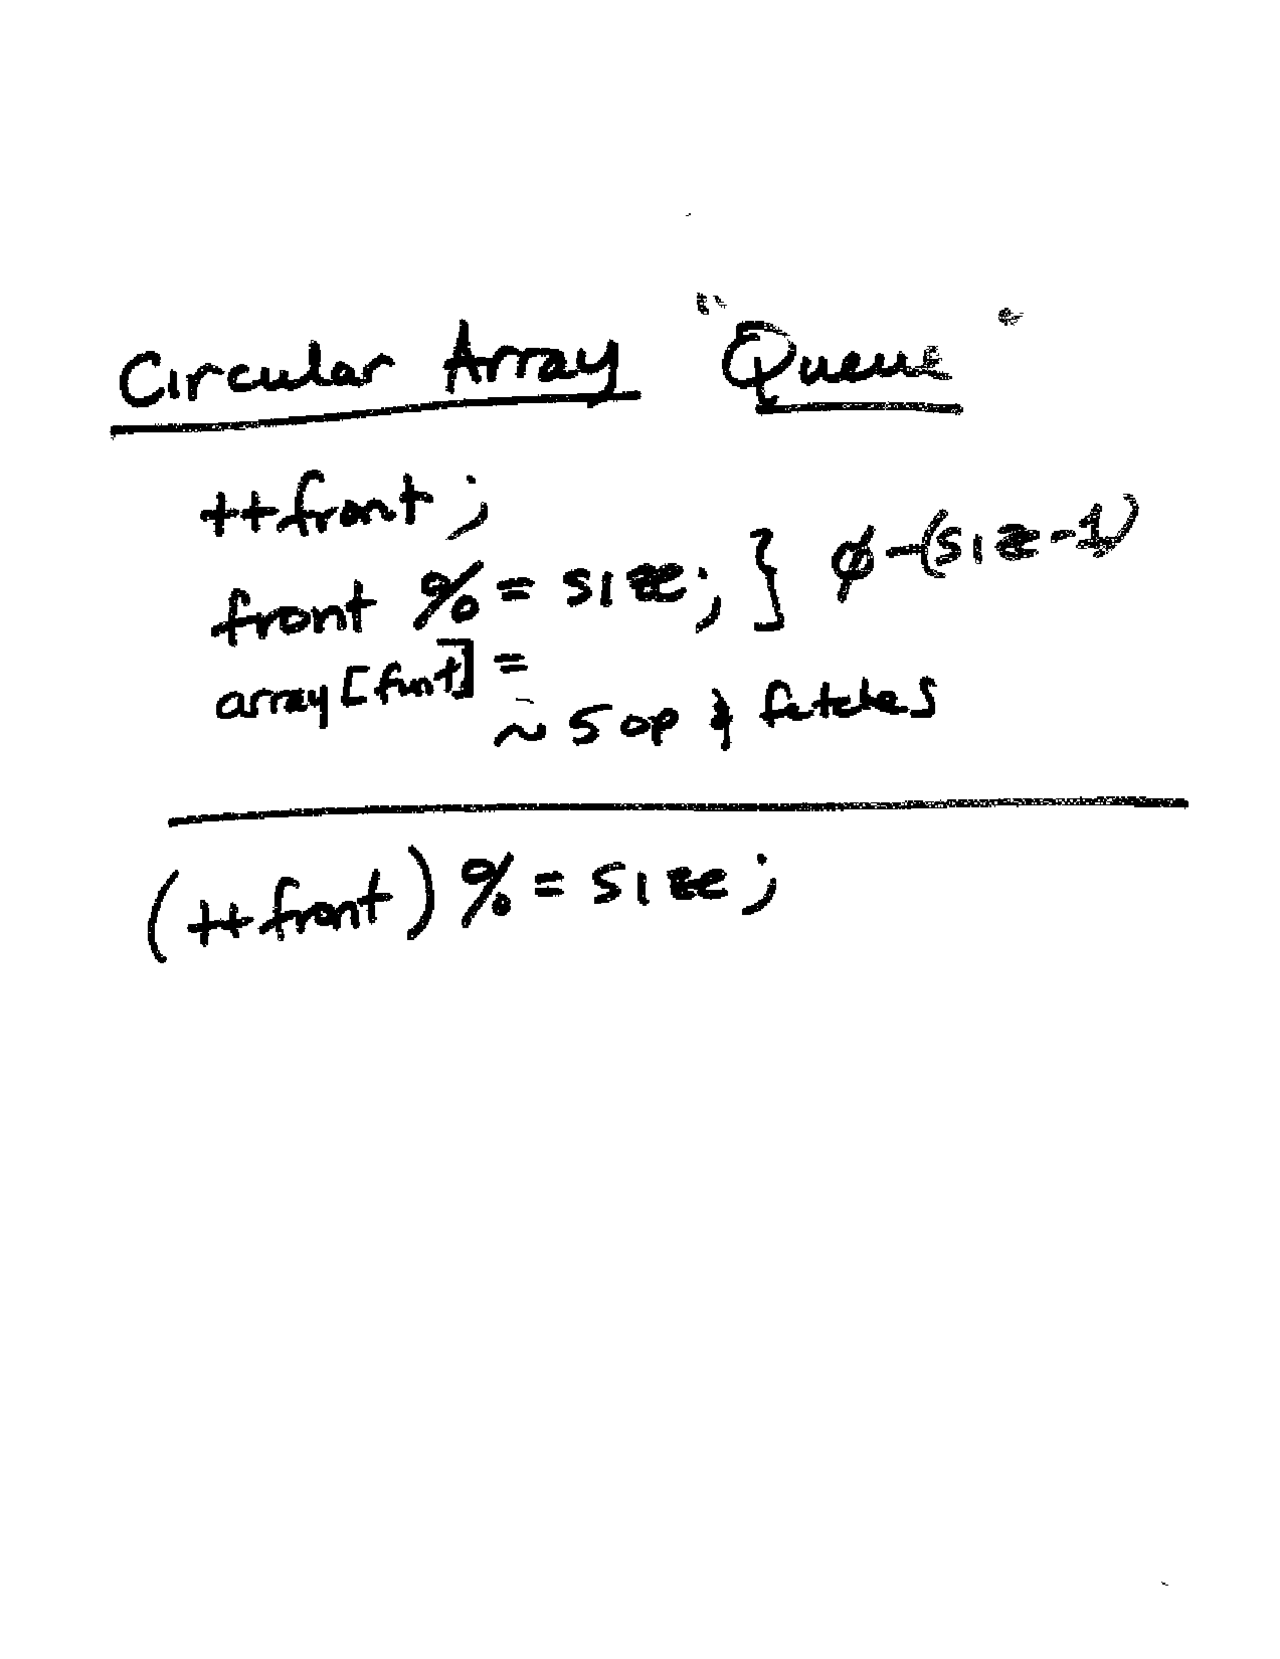 Circular Array "Queue"
++front;
front %= size; } ø-(size-1)
array[front] =
~ 5 op & fetches
(++front) %= size;